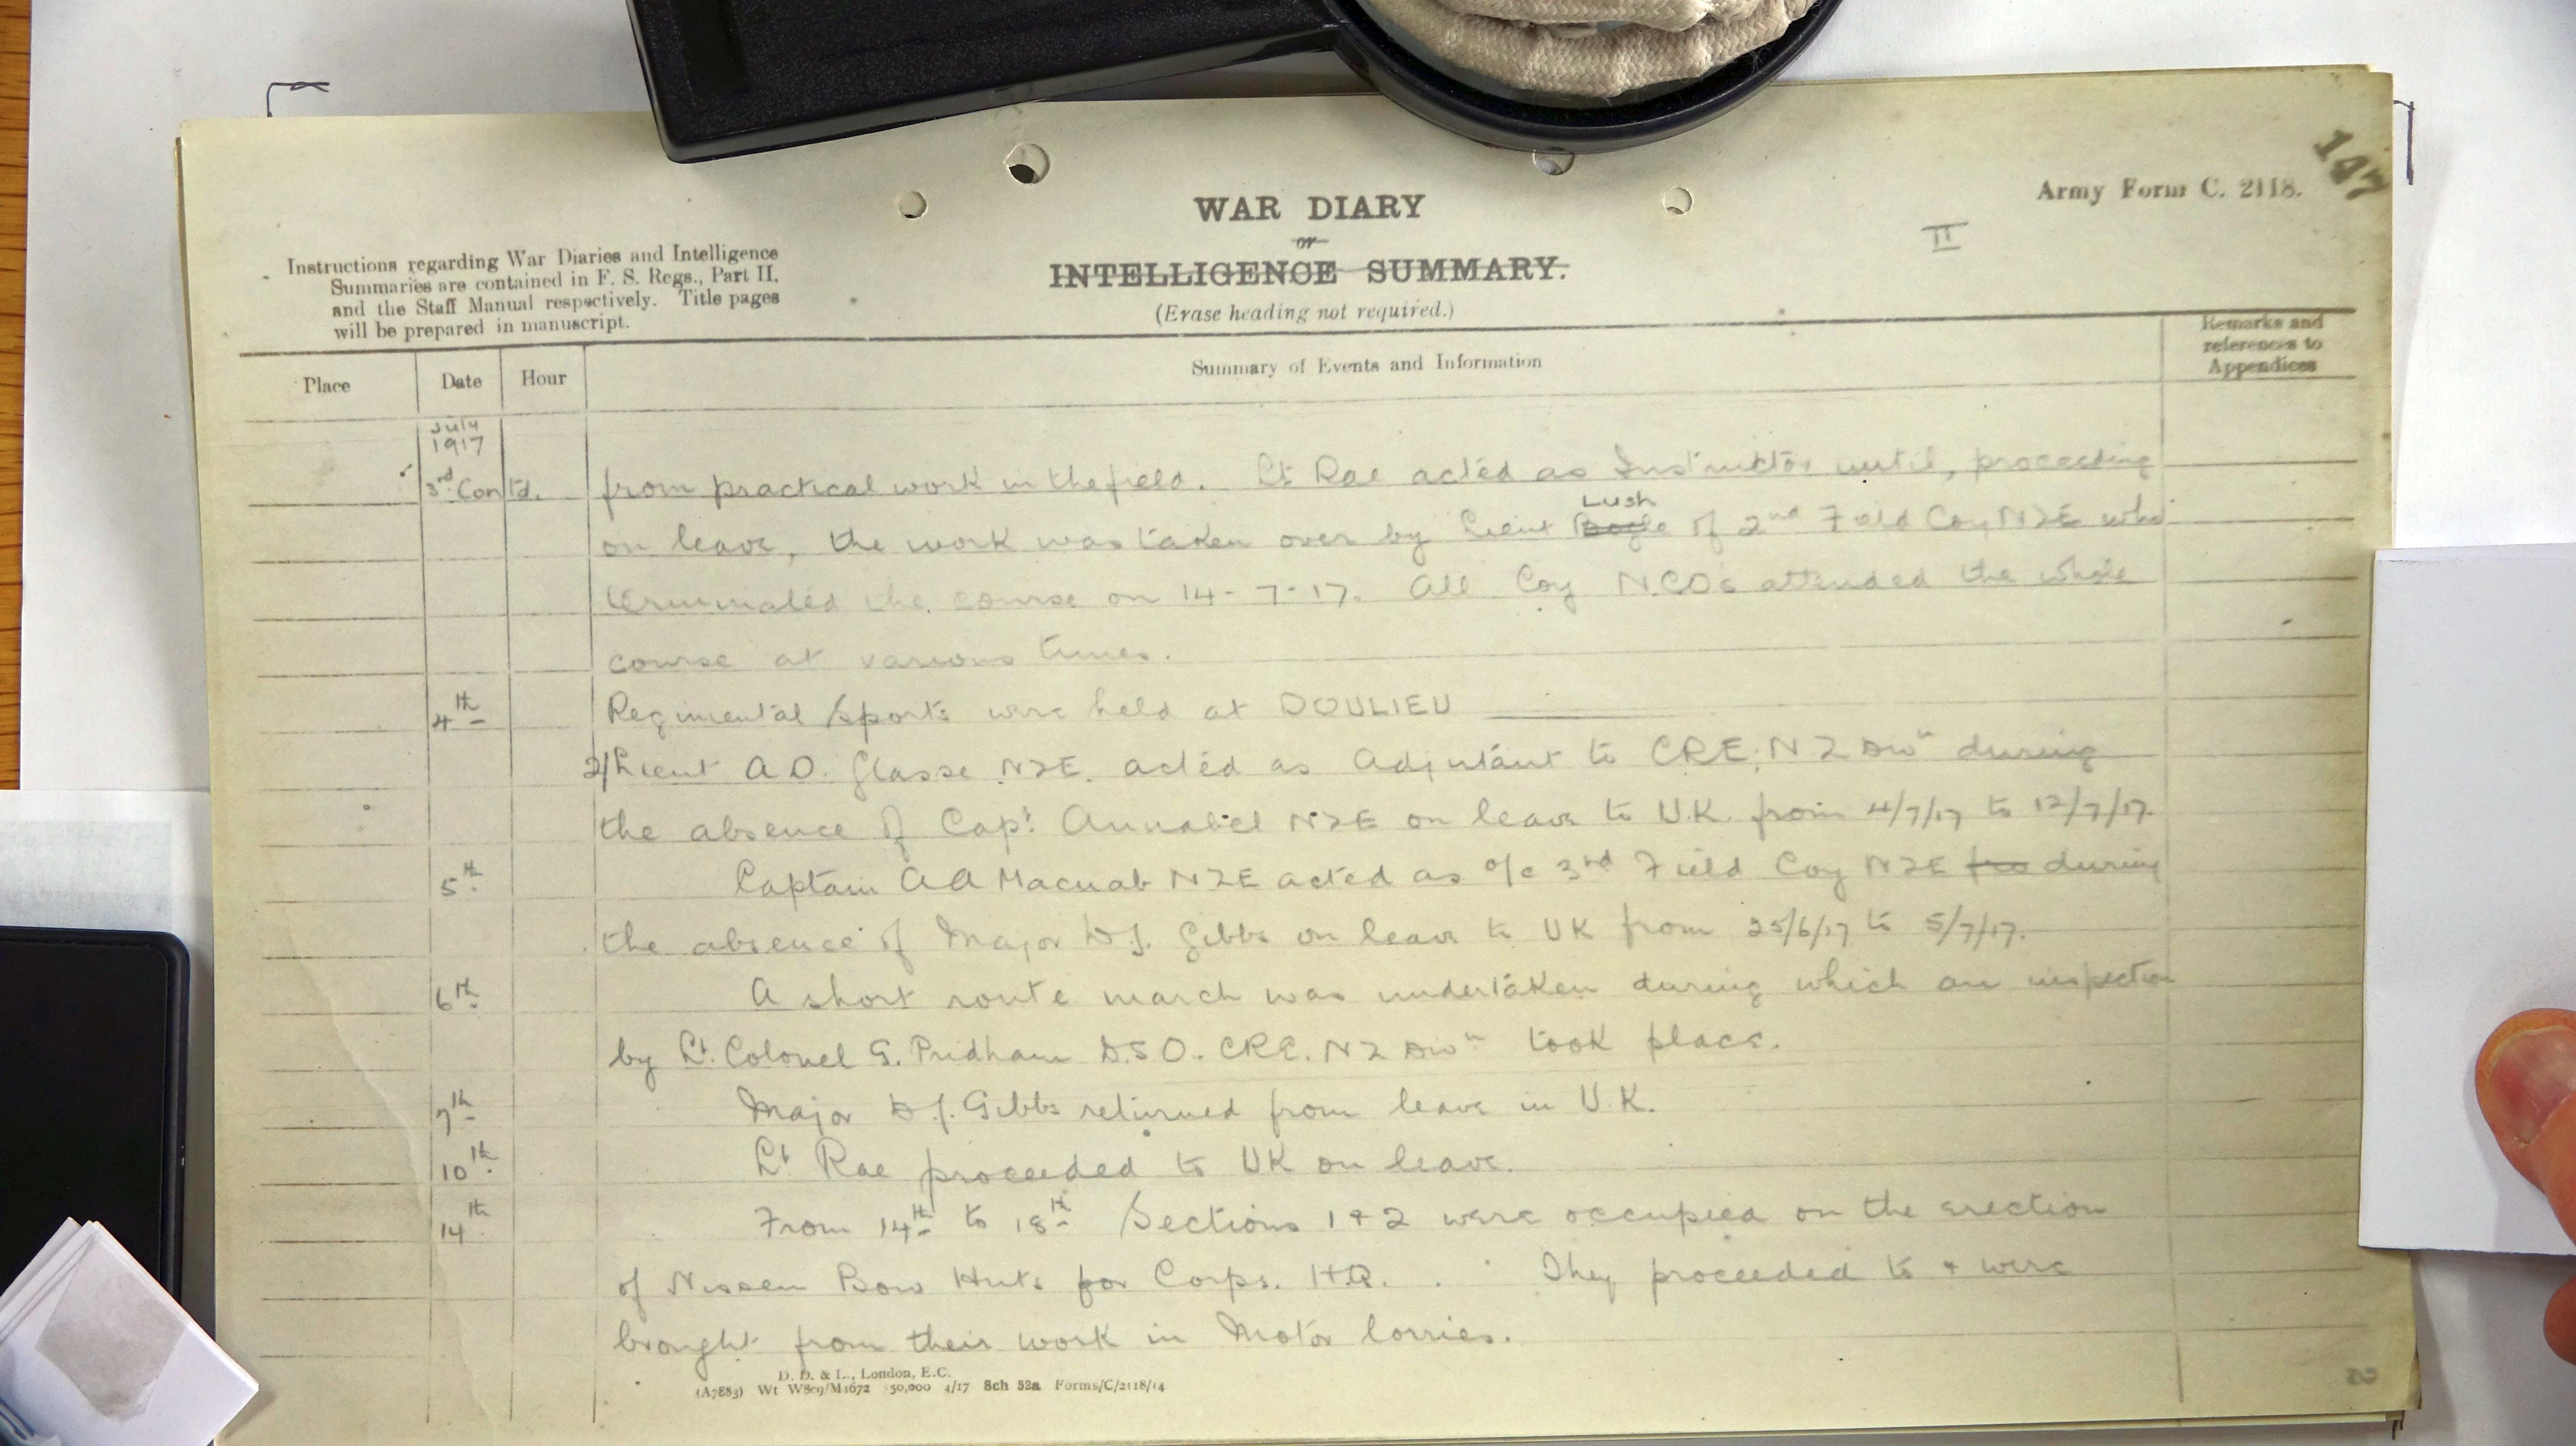 147
Army Form C. 2118.
II
WAR DIARY
or
INTELLIGENCE SUMMARY.
(Erase heading not required.)
Instructions regarding War Diaries and Intelligence
Summaries are contained in F. S. Regs., Part II.
and the Staff Manual respectively. Title pages
will be prepared in manuscript.
Place Date Hour Summary of Events and Information Remarks and references to Appendices
July
1917
3rd Contd. from practical work in the field. Lt Rae acted as Instructor until, proceeding
Lush
on leave, the work was taken over by Lieut Bogle of 2nd Field Coy NZE who
terminated the course on 14-7-17. All Coy N.C.Os attended the whole
course at various times.
4th Regimental Sports were held at DOULIEU
2/Lieut A D. Glasse NZE. acted as Adjutant to CRE, NZ Divn during
the absence of Capt Annabell NZE on leave to U.K. from 4/7/17 to 12/7/17.
5th Captain A A Macnab NZE acted as o/c 3rd Field Coy NZE fro during
the absence of Major H.J. Gibbs on leave to UK from 25/6/17 to 5/7/17.
6th A short route march was undertaken during which an inspection
by Lt. Colonel G. Pridham D.S.O. CRE. NZ Divn took place.
7th Major H.J. Gibbs returned from leave in U.K.
10th Lt Rae proceeded to UK on leave.
14th From 14th to 18th Sections 1 & 2 were occupied on the erection
of Nissen Bow Huts for Corps. H.Q. They proceeded to & were
brought from their work in Motor lorries.
D. D. & L., London, E.C.
(A7883) Wt W809/M1672 350,000 4/17 Sch 52a Forms/C/2118/14